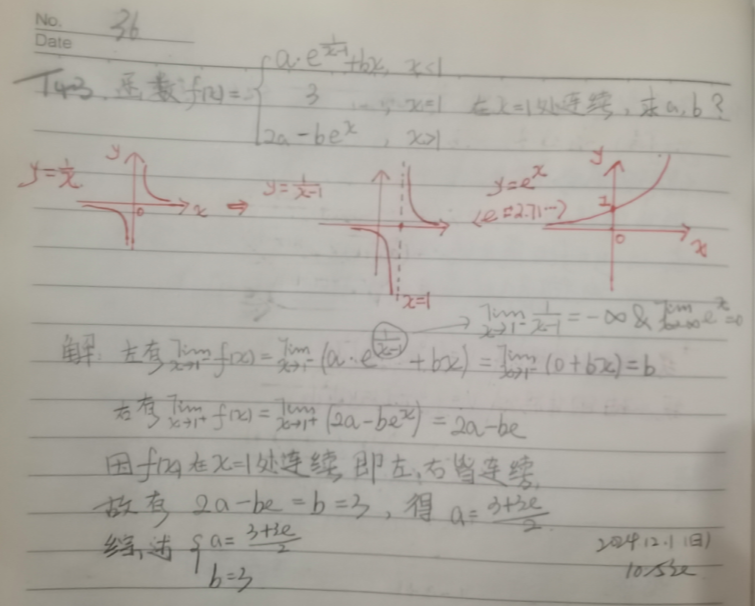 No. 36
Date
T43. 函数f(x)={a·e^(1/(x-1))+bx, x<1
3, x=1 在x=1处连续,求a,b?
2a-be^x, x>1
y=1/x y x 0 ⇒ y=1/(x-1) x=1 y=e^x (e=2.71…) y 1 0 x
lim x→1⁻ 1/(x-1) = -∞ & lim x→-∞ e^x=0
解: 左有 lim x→1⁻ f(x) = lim x→1⁻ (a·e^(1/(x-1))+bx) = lim x→1⁻ (0+bx)=b
右有 lim x→1⁺ f(x) = lim x→1⁺ (2a-be^x) = 2a-be
因f(x)在x=1处连续,即左、右皆连续,
故有 2a-be=b=3, 得 a=(3+3e)/2
综上述 {a=(3+3e)/2
b=3
2024.12.1 (日)